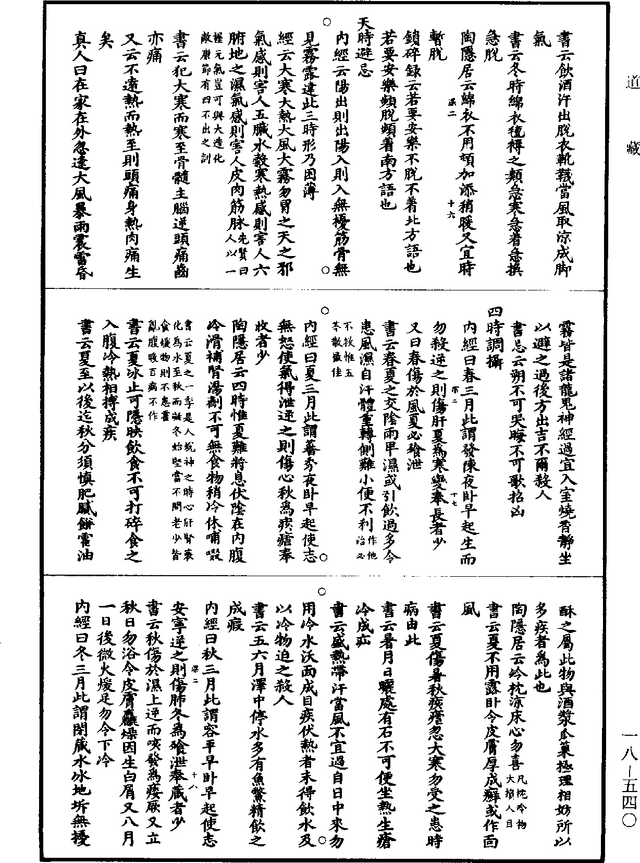 道藏
書云飲酒汗出脫衣靴韈當風取涼成脚
氣
書云冬時綿衣氊褥之類急寒急着急換
急脫
陶隱居云綿衣不用頓加添稍暖又宜時
暫脫
瑣碎録云若要安樂不脫不着北方語也
若要安樂頻脫頻着南方語也
天時避忌
內經云陽出則出陽入則入無擾筋骨無
見霧露違此三時形乃困薄
經云大寒大熱大風大霧勿冒之天之邪
氣感則害人五臟水穀寒熱感則害人六
腑地之濕氣感則害人皮肉筋脉先賢曰人以一
握元氣豈可與大造化
敵康節有四不出之訓
書云犯大寒而寒至骨髓主腦逆頭痛齒
亦痛
又云不遠熱而熱至則頭痛身熱肉痛生
矣
真人曰在家在外忽逢大風暴雨震雷昏
霧皆是諸龍鬼神經過宜入室燒香靜坐
以避之過後方出吉不爾殺人
書忌云朔不可哭晦不可歌招凶
四時調攝
內經曰春三月此謂發陳夜卧早起生而
勿殺逆之則傷肝夏為寒變奉長者少
又曰春傷於風夏必飱泄
書云春夏之交陰雨卑濕或引飲過多令
患風濕自汗體重轉側難小便不利作他治必
不救惟五
苓散最佳
內經曰夏三月此謂蕃秀夜卧早起使志
無怒使氣得泄逆之則傷心秋為痎瘧奉
收者少
陶隱居云四時惟夏難將息伏陰在內腹
冷滑補腎湯劑不可無食物稍冷休哺啜
書云夏之一季是人脫神之時心旺腎衰
化為水至秋而凝冬始堅當不問老少皆
食煖物則不患霍
亂腹暖百病不作
書云夏冰止可隱映飲食不可打碎食之
入腹冷熱相搏成疾
書云夏至以後迄秋分須慎肥膩餅霍油
酥之屬此物與酒漿瓜菓極理相妨所以
多疾者為此也
陶隱居云冷枕涼床心勿喜凡枕冷物大損人目
書云夏不用露卧令皮膚厚成癬或作面
風
書云夏傷暑秋痎瘧忽大寒勿受之患時
病由此
書云暑月日曬處有石不可便坐熱生瘡
冷成疝
書云盛熱帶汗當風不宜過自日中來勿
用冷水沃面成目疾伏熱者未得飲水及
以冷物迫之殺人
書云五六月澤中停水多有魚鱉精飲之
成瘕
內經曰秋三月此謂容平早卧早起使志
安寧逆之則傷肺冬為飱泄奉藏者少
書云秋傷於濕上逆而咳發為痿厥又立
秋日勿浴令皮膚麤燥因生白屑又八月
一日後微火煖足勿令下冷
內經曰冬三月此謂閉藏水冰地坼無擾
一八—五四〇